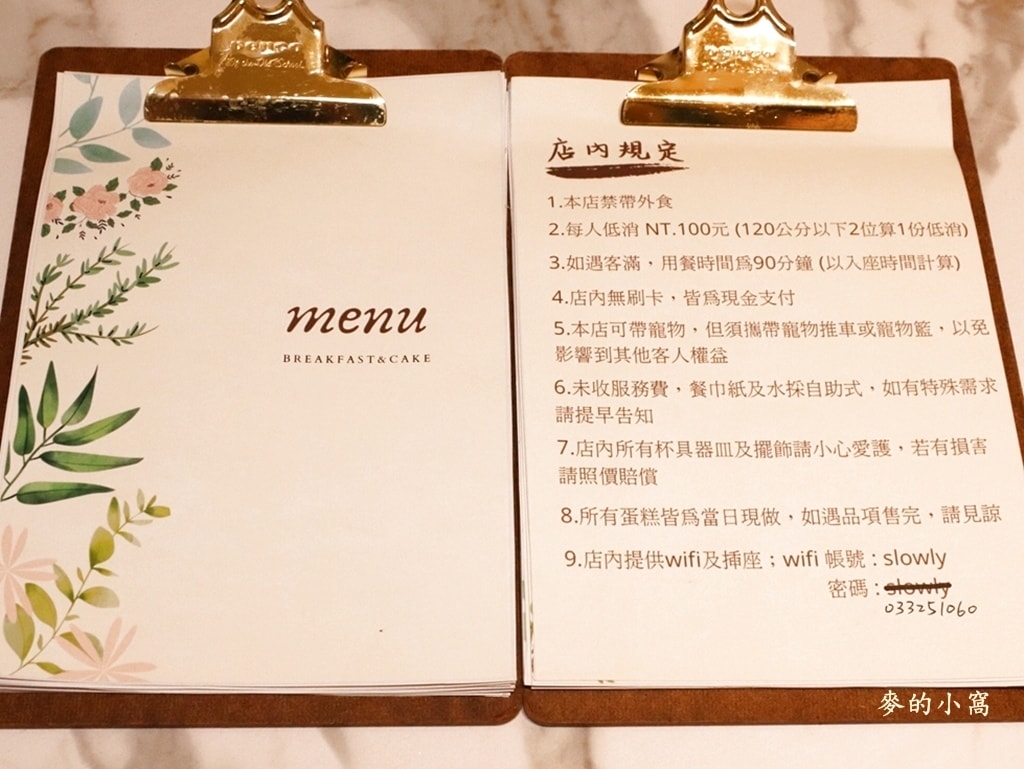 menu
BREAKFAST&CAKE
店內規定
1.本店禁帶外食
2.每人低消 NT.100元 (120公分以下2位算1份低消)
3.如遇客滿，用餐時間爲90分鐘 (以入座時間計算)
4.店內無刷卡，皆爲現金支付
5.本店可帶寵物，但須攜帶寵物推車或寵物籃，以免
影響到其他客人權益
6.未收服務費，餐巾紙及水採自助式，如有特殊需求
請提早告知
7.店內所有杯具器皿及擺飾請小心愛護，若有損害
請照價賠償
8.所有蛋糕皆爲當日現做，如遇品項售完，請見諒
9.店內提供wifi及插座；wifi 帳號：slowly
密碼：slowly
033251060
麥的小窩